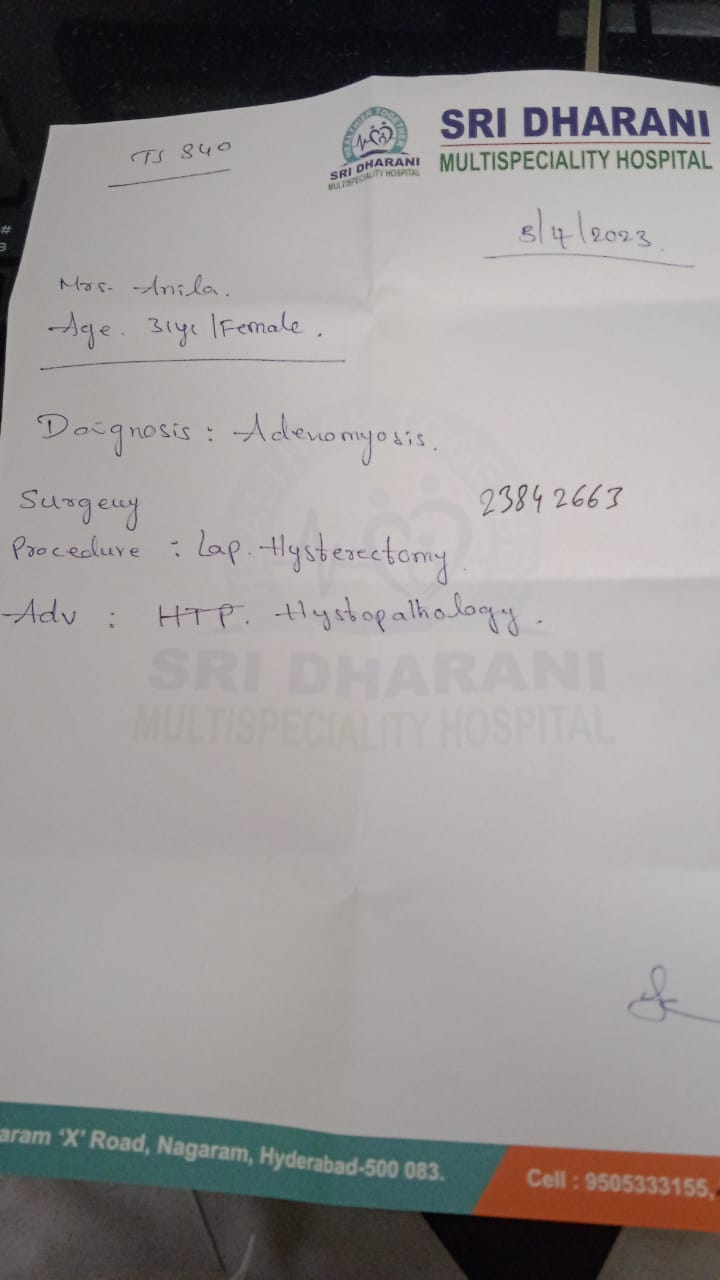 TS 840
HEALTHIER TOGETHER
SRI DHARANI
MULTISPECIALITY HOSPITAL
SRI DHARANI
MULTISPECIALITY HOSPITAL
5/4/2023.
Mrs. Anila.
Age. 31yr /Female.
Daignosis : Adenomyosis.
23842663
Surgery
Procedure : Lap. Hysterectomy.
Adv : HTP. Hystopathology.
SRI DHARANI
MULTISPECIALITY HOSPITAL
aram 'X' Road, Nagaram, Hyderabad-500 083.
Cell : 9505333155,